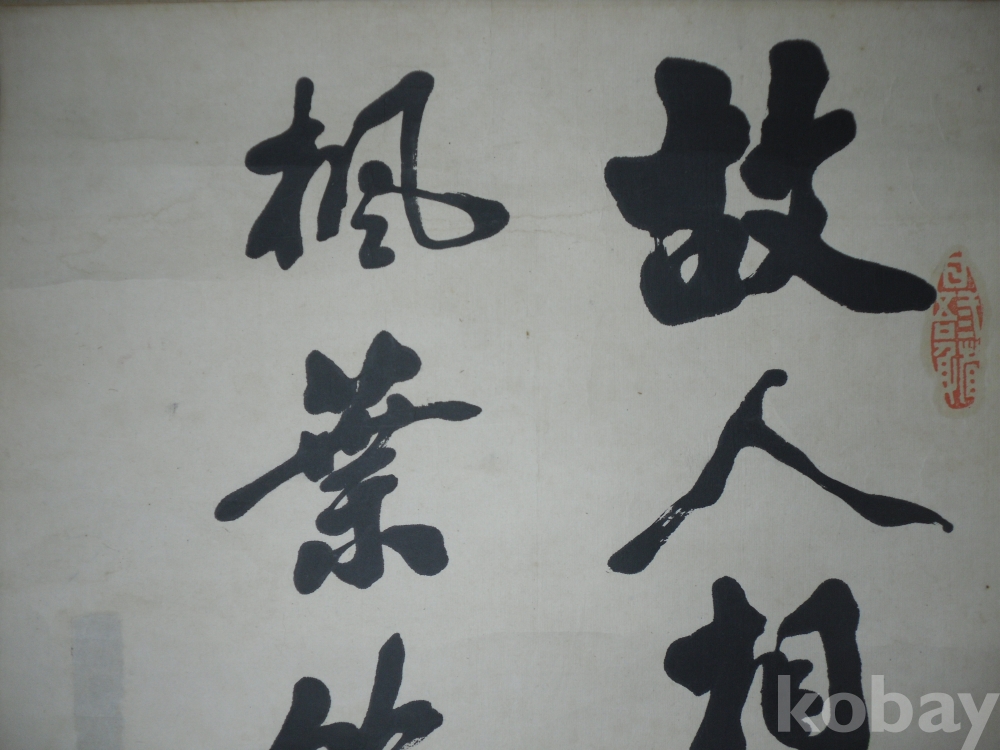 故人相
楓葉
kobay